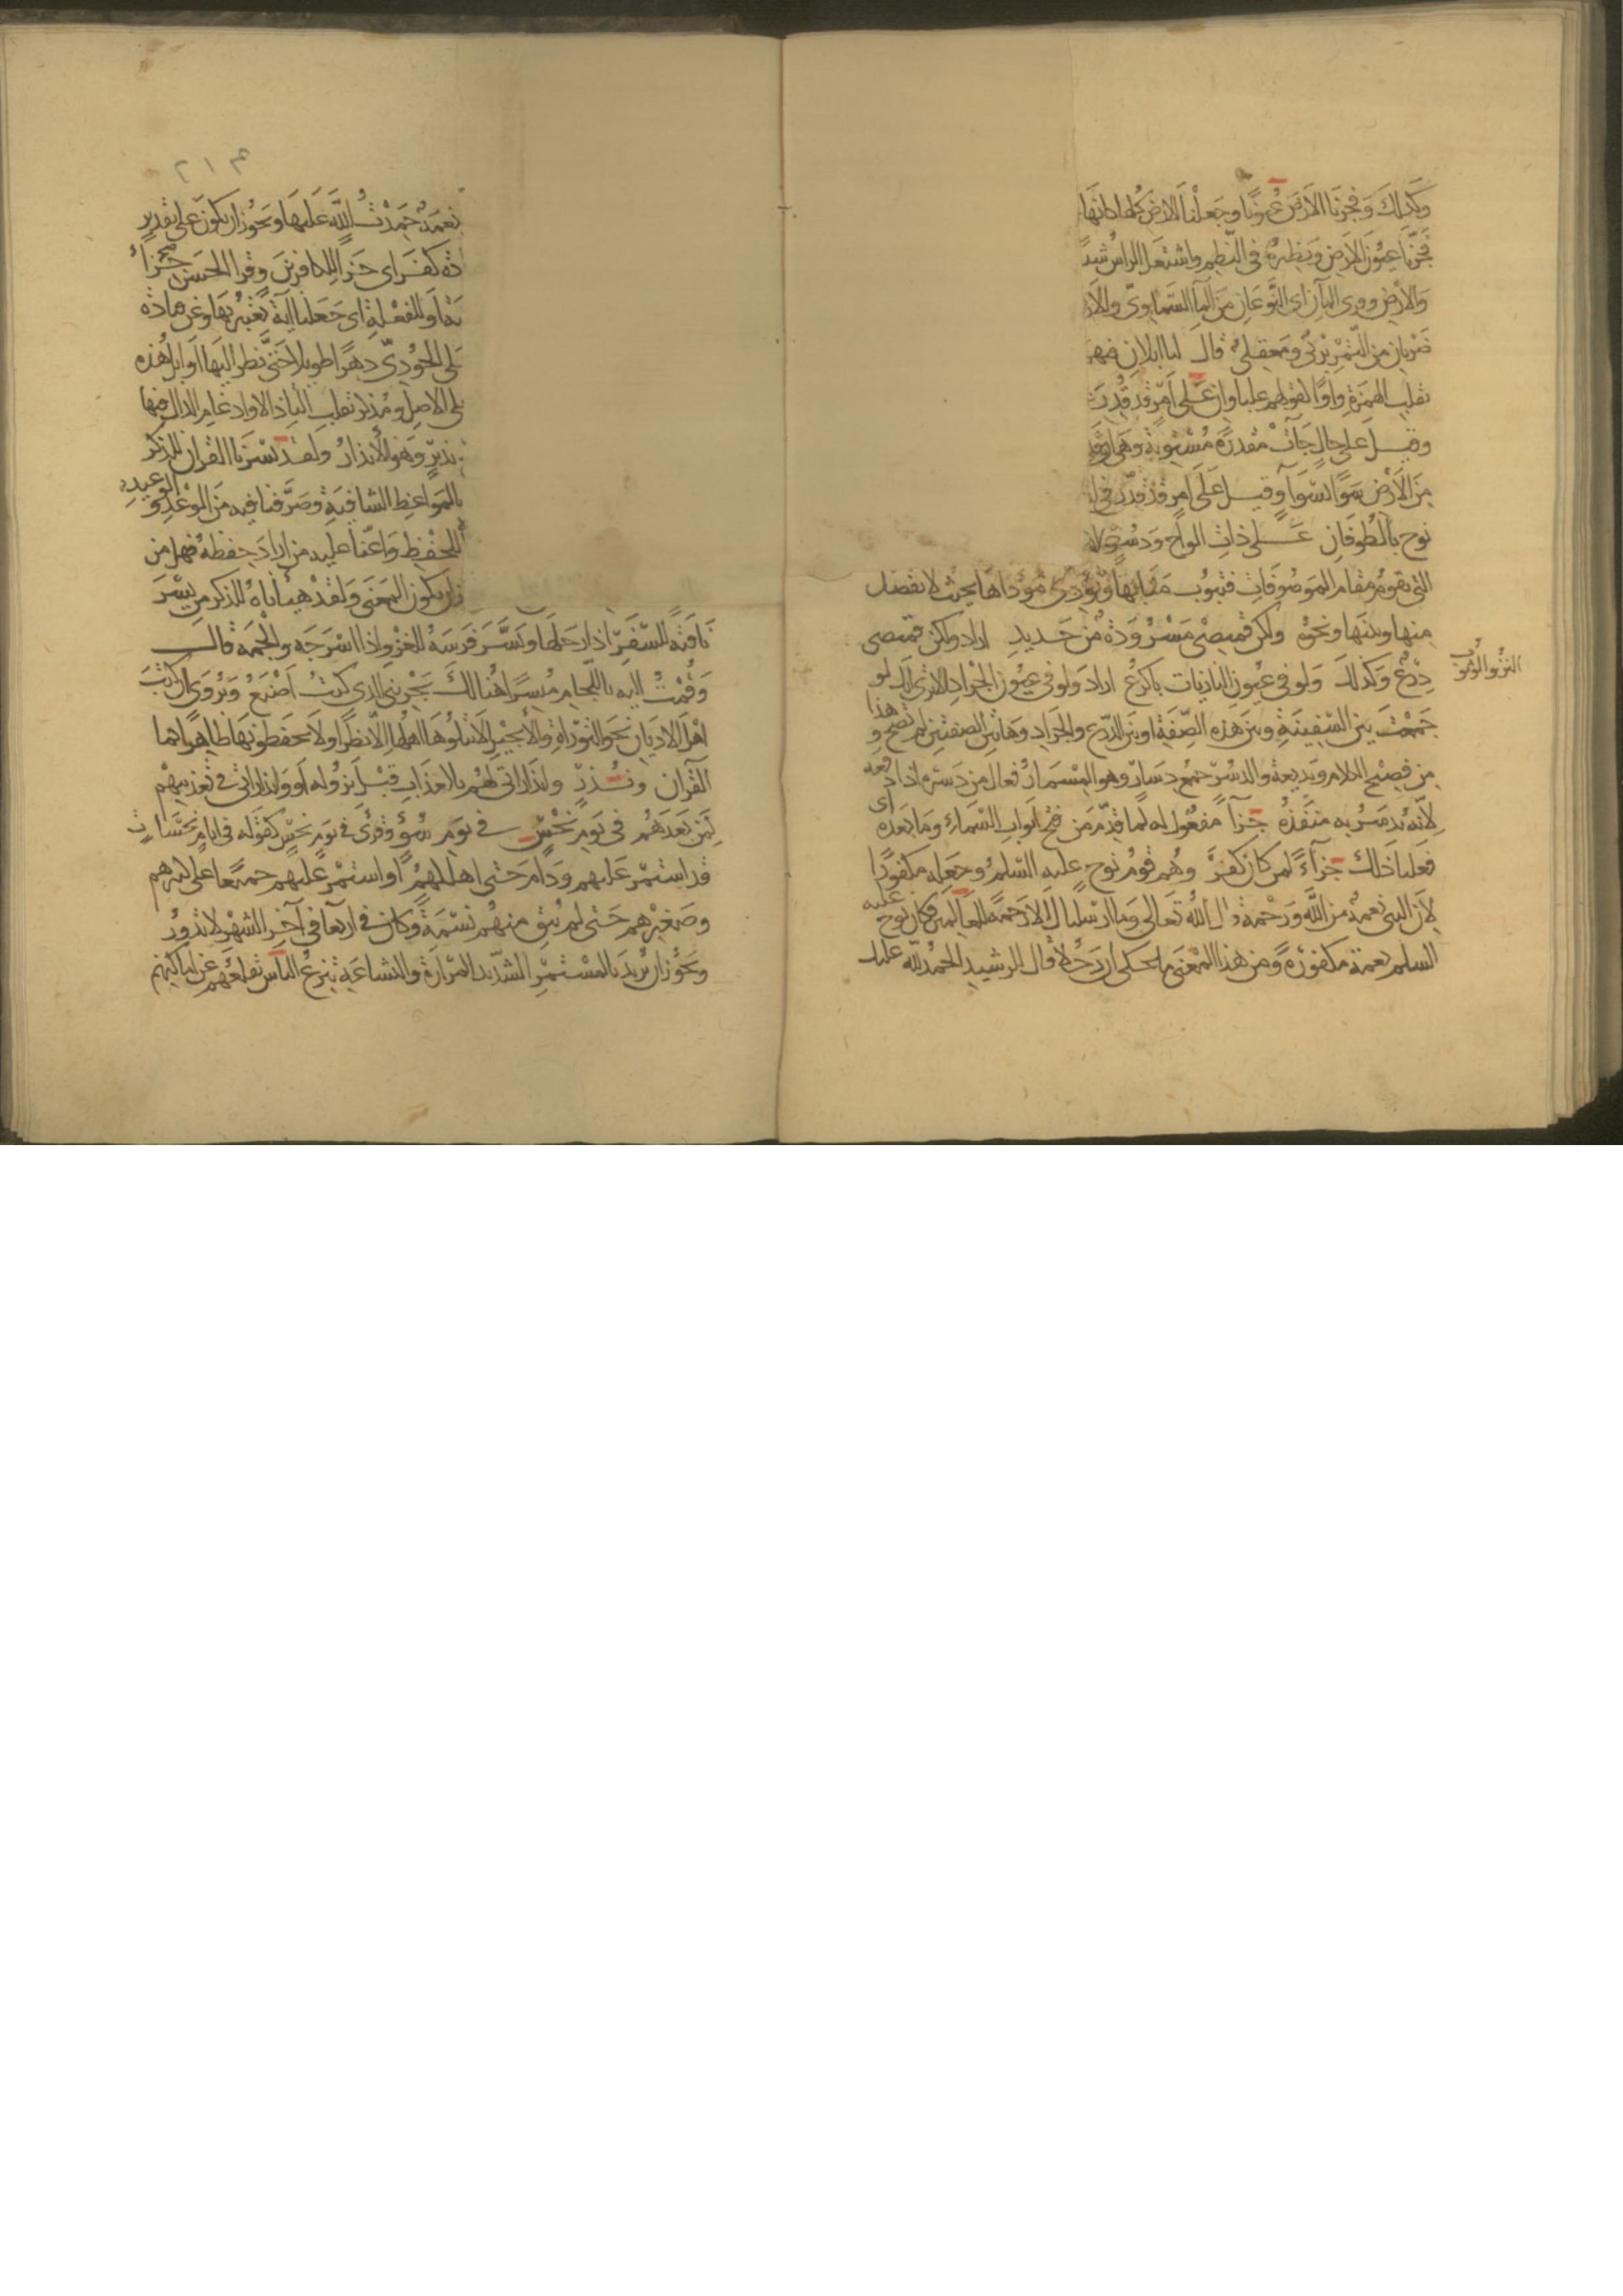 وكذلك وفجرنا الارض عيونا وجعلنا الارض كلها كانها
فجرنا عيون الارض ونظيره في النظم واشتعل الراس شيبا
والارض وروى المآان اى النوعان من المآ السماوى والار
ضربان من التمر برنى ومعقلى قال لنا ابلان فيهما
بقلب الهمزة واوا كقولهم علباوان على امر قد قدر
وقيل على حال جآت مقدرة مستوية وهى ان قد
من الارض سوا بسوآ وقيل على امر قد قدر فى ا
نوح بالطوفان على ذات الواح ودسر
التى تقوم مقام الموصوفات فتنوب منابها وتؤدى مؤداها بحيث لا تفصل
منها وبينها ونحوه ولكن قميصى مسرودة من حديد اراد ولكن قميصى
النزو الوثوب
درع وكذلك ولو فى عيون النازيات باكرع اراد ولو فى عيون الجراد الا ترى انك لو
جمعت بين السفينة وبين هذه الصفة او بين الدرع والجراد وهاتين الصفتين لم تصح وهذا
من فصيح الكلام وبديعه والدسر جمع دسار وهو المسمار فعال من دسره اذا دفعه
لانه يدسر به منفذه جزآ مفعول له لما قدم من فتح ابواب السمآء وما بعده اى
فعلنا ذلك جزآء لمن كان كفر وهم قوم نوح عليه السلم وجعله مكفورا
لان النبى نعمة من الله ورحمة قال الله تعالى وما ارسلناك الا رحمة للعالمين فكان نوح عليه
السلم نعمة مكفورة ومن هذا المعنى ما يحكى ان رجلا قال للرشيد الحمد لله عليك
٢١٣
نعمة حمدت الله عليها ويجوز ان يكون على تقدير
كفر اى جزآ للكافرين وقرا الحسن جزآء
او للفعلة اى جعلناها آية يعتبر بها وعن قتادة
على الجودى دهرا طويلا حتى نظر اليها اوايل هذه
على الاصل ومذكر بقلب التا ذالا وادغام الذال فيها
نذير وهو الانذار ولقد يسرنا القران للذكر
بالمواعظ الشافية وصرفنا فيه من الوعد والوعيد
للحفظ واعنا عليه من اراد حفظه فهل من
ان يكون المعنى ولقد هيأناه للذكر من يسر
ناقته للسفر اذا رحلها ويسر فرسه للغزو اذا اسرجه والجمه قال
وقمت اليه باللجام ميسرا هنالك يجزينى الذى كنت اصنع ويروى ان كتب
اهل الاديان نحو التوراة والانجيل لا يتلوها اهلها الا نظرا ولا يحفظونها ظاهرا كما
القرآن ونذر وانذاراتى لهم بالعذاب قبل نزوله او وانذاراتى فى تعذيبهم
لمن بعدهم فى يوم نحس فى يوم شؤم وقرى فى يوم نحس كقوله فى ايام نحسات
قد استمر عليهم ودام حتى اهلكهم او استمر عليهم جميعا على كبيرهم
وصغيرهم حتى لم يبق منهم نسمة وكان فى اربعا فى آخر الشهر لا تدور
ويجوز ان يريد بالمستمر الشديد المرارة والبشاعة تنزع الناس تقلعهم عن اماكنهم